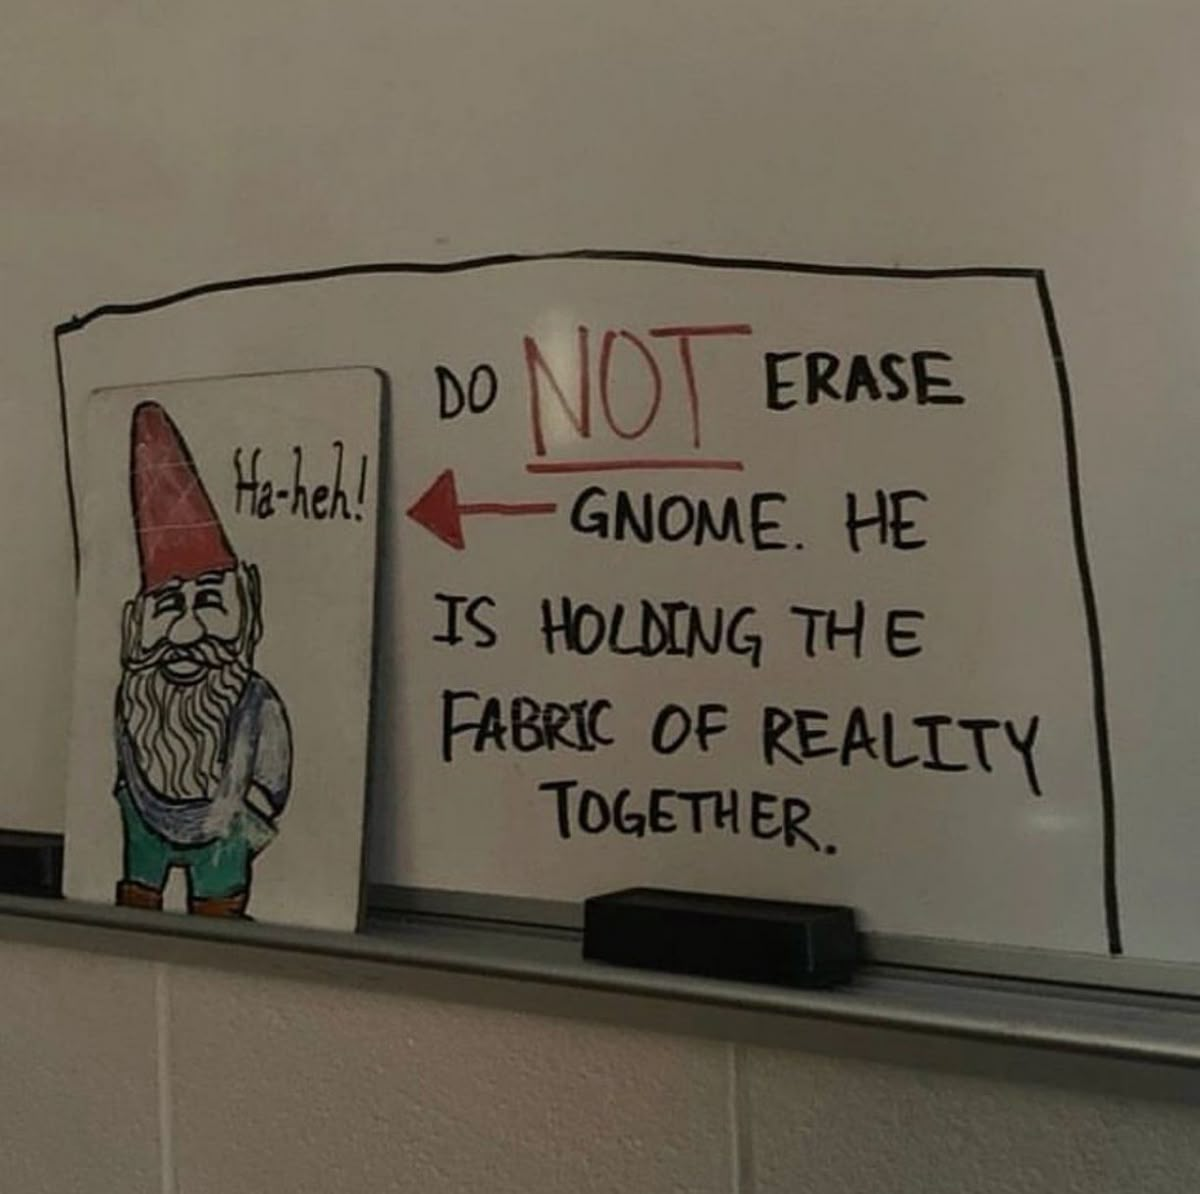 Ha-heh!
DO NOT ERASE
GNOME. HE
IS HOLDING THE
FABRIC OF REALITY
TOGETHER.